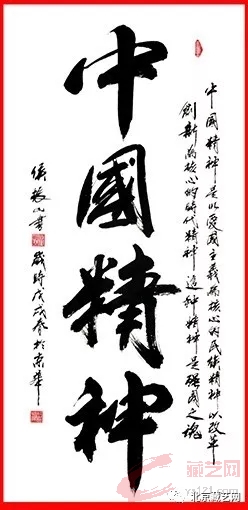 中國精神是以愛國主義為核心的民族精神以改革
創新為核心的時代精神這種精神是強國之魂
中國精神
山書歲時戊戌春於京華
藏艺网
北京藏艺网